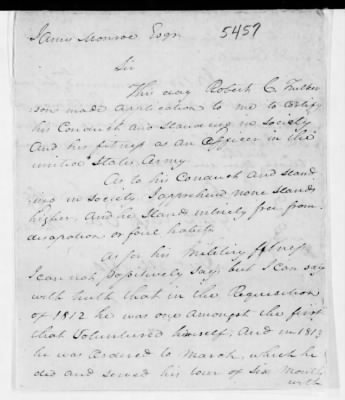 James Monroe Esqr 5457
Sir
This day Robert C. Fulker
son made application to me to certify
his Conduct and standing in Society
And his fitness as an Officer in the
united States Army
As to his Conduct and stand
ing in Society I apprehend none stands
higher, And he stands intirely free from
disapation or foul habits
As for his military fitness
I can not, positively say, but I can say
with truth that in the Requisition
of 1812 he was one amongst the first
that Volunteered himself, And in 1813
he was ordered to March, which he
did and served his tour of Six Months
with